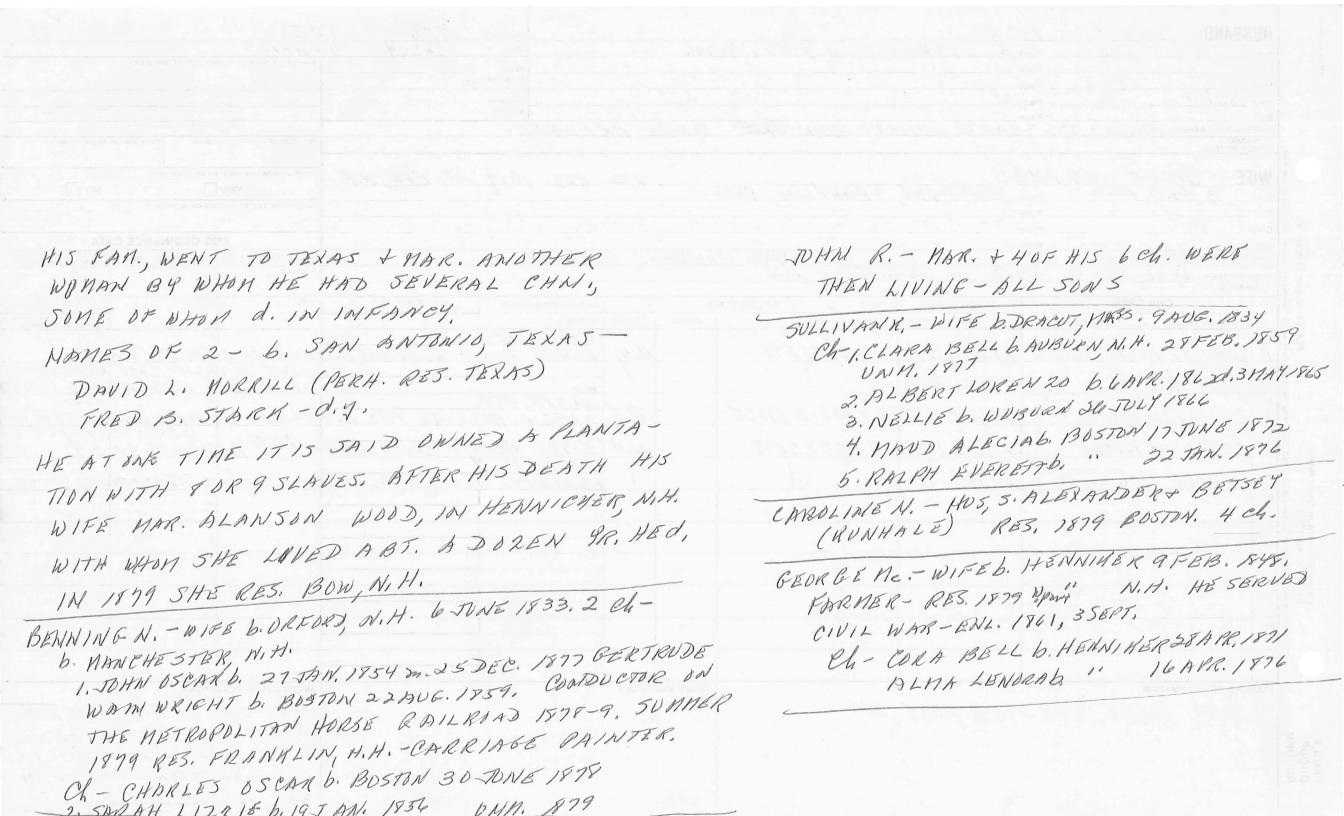 HIS FAM., WENT TO TEXAS & MAR. ANOTHER
WOMAN BY WHOM HE HAD SEVERAL CHN.,
SOME OF WHOM d. IN INFANCY.
NAMES OF 2 - b. SAN ANTONIO, TEXAS —
DAVID L. MORRILL (PERH. RES. TEXAS)
FRED B. STARK - d.y.
HE AT ONE TIME IT IS SAID OWNED A PLANTA-
TION WITH 8 OR 9 SLAVES. AFTER HIS DEATH HIS
WIFE MAR. ALANSON WOOD, IN HENNICHER, N.H.
WITH WHOM SHE LIVED ABT. A DOZEN YR. HE d,
IN 1879 SHE RES. BOW, N.H.
BENNING N. - WIFE b. ORFORD, N.H. 6 JUNE 1833. 2 Ch-
b. MANCHESTER, N.H.
1. JOHN OSCAR b. 27 JAN. 1854 m. 25 DEC. 1877 GERTRUDE
WAINWRIGHT b. BOSTON 22 AUG. 1859. CONDUCTOR ON
THE METROPOLITAN HORSE RAILROAD 1878-9. SUMMER
1879 RES. FRANKLIN, N.H. - CARRIAGE PAINTER.
Ch - CHARLES OSCAR b. BOSTON 30 JUNE 1878
2. SARAH LIZZIE b. 19 JAN. 1836 UNM. 1879
JOHN R. - MAR. & 4 OF HIS 6 Ch. WERE
THEN LIVING - ALL SONS
SULLIVAN K. - WIFE b. DRACUT, MASS. 9 AUG. 1834
Ch - 1. CLARA BELL b. AUBURN, N.H. 28 FEB. 1859
UNM. 1877
2. ALBERT LORENZO b. 6 APR. 1862 d. 3 MAY 1865
3. NELLIE b. WOBURN 26 JULY 1866
4. MAUD ALECIA b. BOSTON 17 JUNE 1872
5. RALPH EVERETT b. " 22 JAN. 1876
CAROLINE N. - HUS, S. ALEXANDER & BETSEY
(RUNHALE) RES. 1879 BOSTON. 4 Ch.
GEORGE Mc. - WIFE b. HENNIKER 9 FEB. 1848.
FARMER - RES. 1879 " N.H. HE SERVED
CIVIL WAR - ENL. 1861, 3 SEPT.
Ch - CORA BELL b. HENNIKER 28 APR. 1871
ALMA LENORA b. " 16 APR. 1876